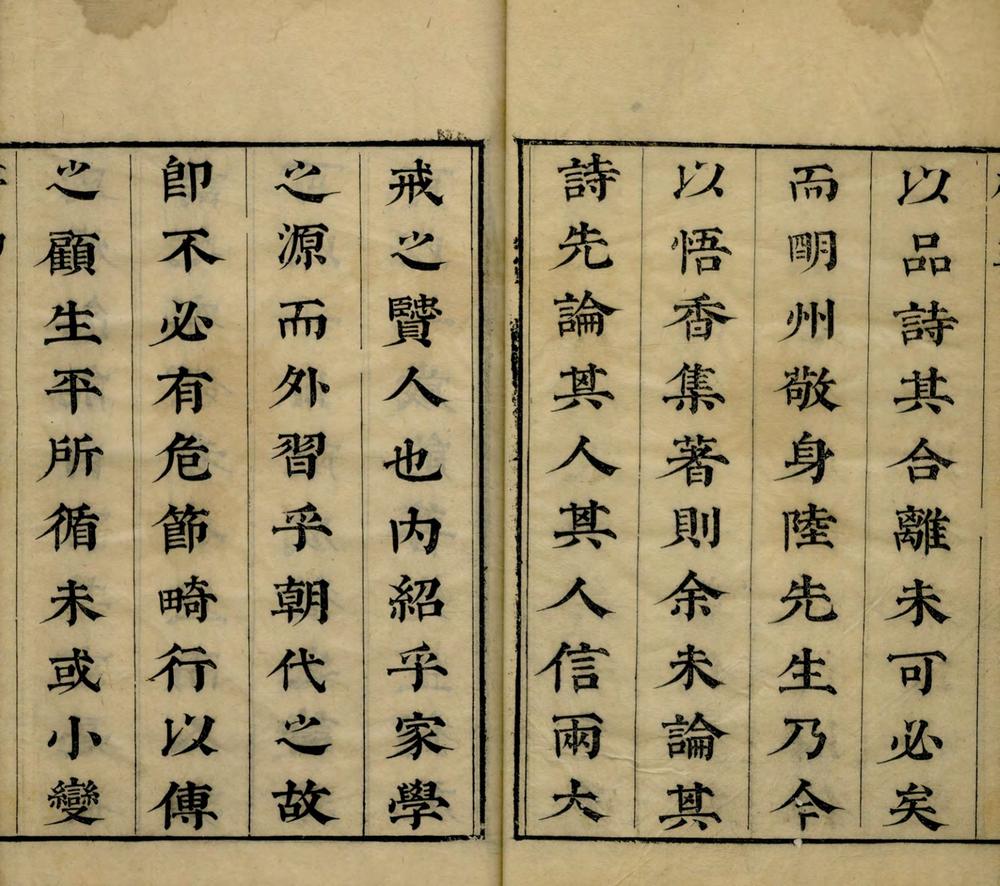 以品詩其合離未可必矣
而明州敬身陸先生乃今
以悟香集著則余未論其
詩先論其人其人信兩大
戒之賢人也內紹乎家學
之源而外習乎朝代之故
即不必有危節畸行以傳
之顧生平所循未或小變